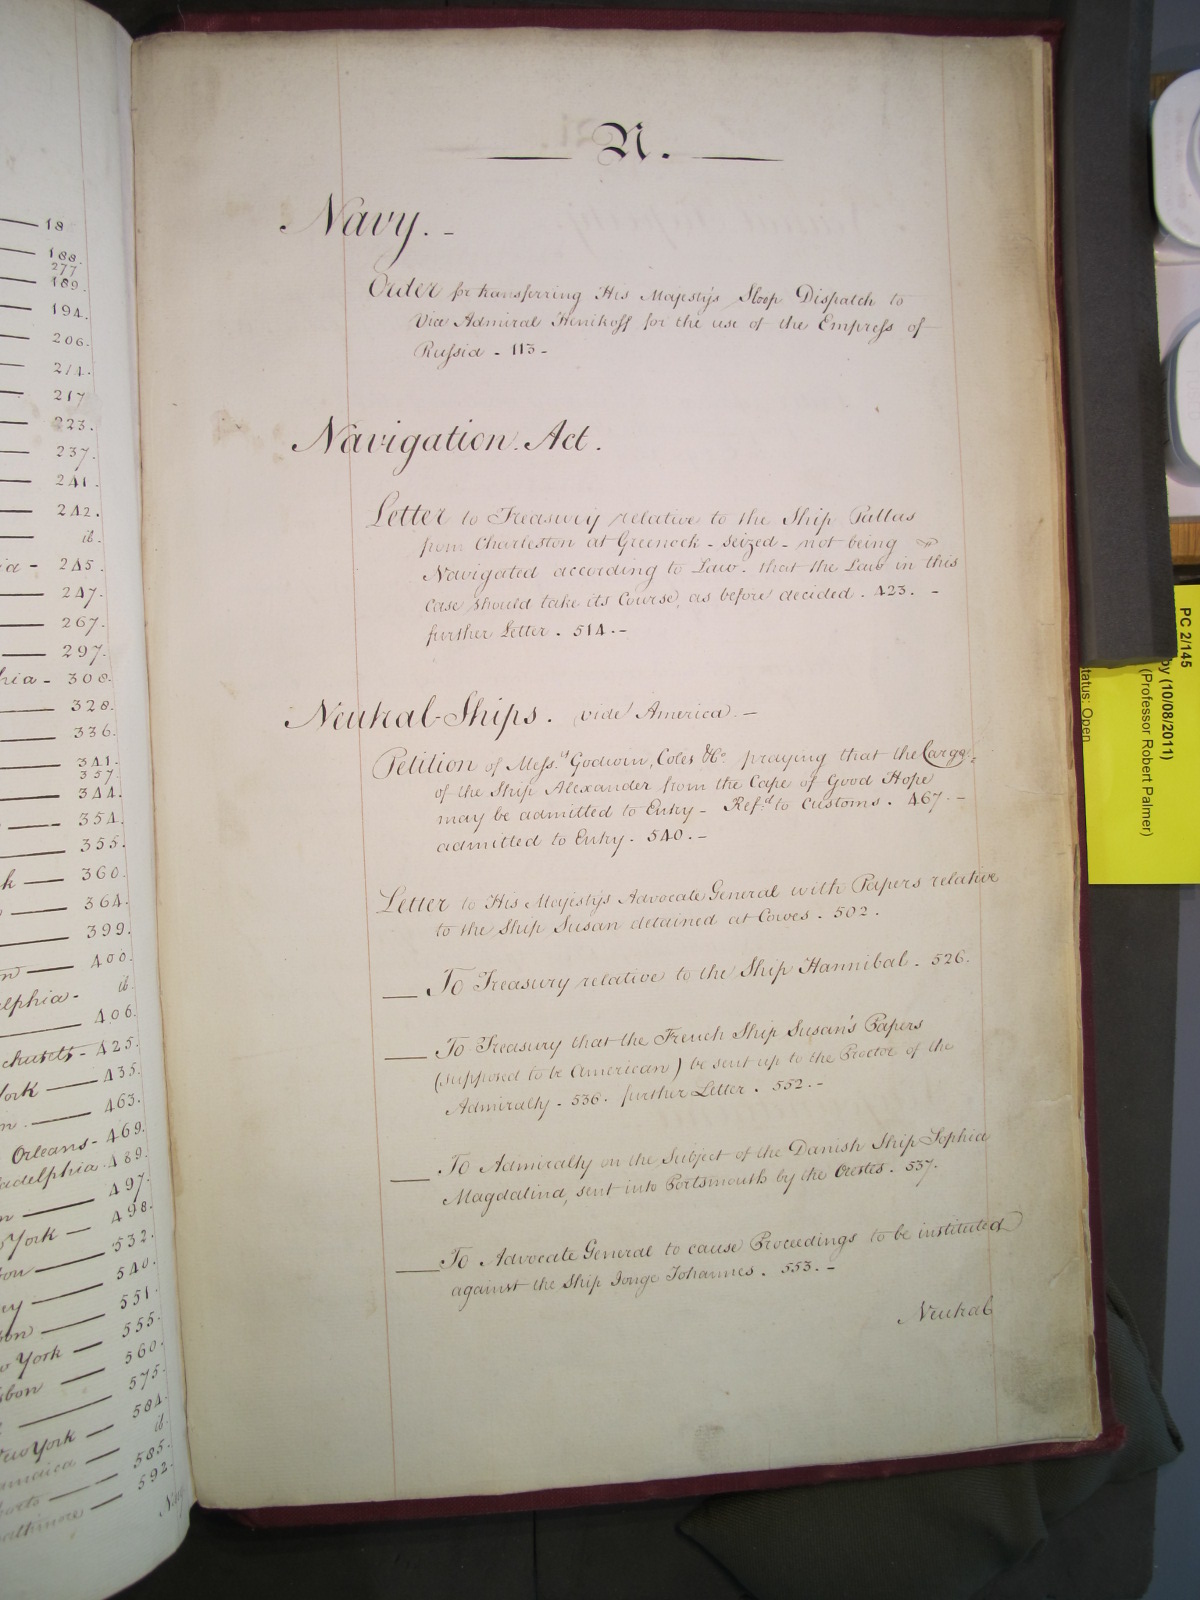 18
188.
277
189.
194.
206.
214.
217
223.
237.
241.
242.
ib.
a - 245.
247.
267.
297.
hia - 308.
328.
336.
341.
357.
344.
354.
355.
k — 360.
364.
399.
n — 400.
elphia - ib.
406.
chusets - 425.
York — 435.
n. — 463.
Orleans - 469.
adelphia. 489.
n — 497.
York — 498.
on — 532.
ey — 540.
on — 551.
w York — 555.
sbon — 560.
575.
New York — 584.
amaica — ib.
585.
altimore — 592.
N.
Navy. -
Order for transferring His Majesty's Sloop Dispatch to
Vice Admiral Henikoff for the use of the Empress of
Russia - 113 -
Navigation Act.
Letter to Treasury relative to the Ship Pallas
from Charleston at Greenock - seized - not being
Navigated according to Law - that the Law in this
Case should take its Course, as before decided . 423. -
further Letter . 514. -
Neutral Ships. vide America. -
Petition of Mess.rs Godwin, Coles &Co. praying that the Cargo
of the Ship Alexander from the Cape of Good Hope
may be admitted to Entry - Ref.d to Customs. 467. -
admitted to Entry. 540. -
Letter to His Majesty's Advocate General with Papers relative
to the Ship Susan detained at Cowes . 502.
— To Treasury relative to the Ship Hannibal. 526.
— To Treasury that the French Ship Susan's Papers
(supposed to be American) be sent up to the Proctor of the
Admiralty . 536. further Letter . 552. -
— To Admiralty on the Subject of the Danish Ship Sophia
Magdalina, sent into Portsmouth by the Orestes . 537.
— To Advocate General to cause Proceedings to be instituted
against the Ship Jonge Johannes . 553. -
Neutral
PC 2/145
by (10/08/2011)
(Professor Robert Palmer)
tatus: Open